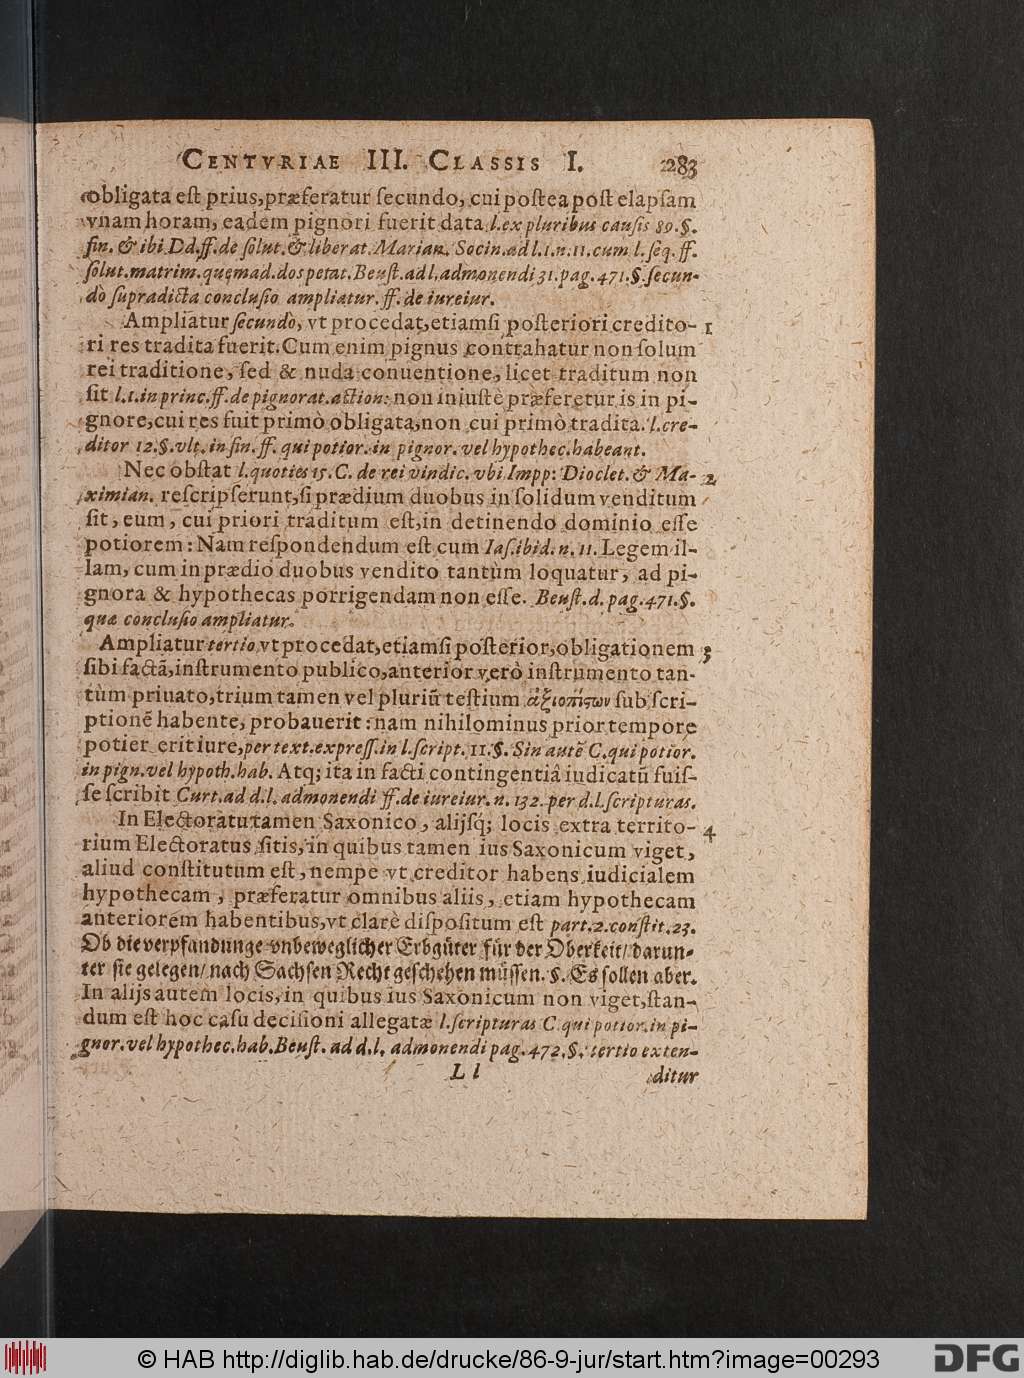 CENTVRIAE III. CLASSIS I. 283
obligata eſt prius, præferatur ſecundo, cui poſtea poſt elapſam
vnam horam, eadem pignori fuerit data l. ex pluribus cauſis 89. §.
fin. & ibi Dd. ff. de ſolut. & liberat. Marian. Socin. ad l. 1. n. 11. cum l. ſeq. ff.
ſolut. matrim. quemad. dos petat. Beuſt. ad l. admonendi 31. pag. 471. §. ſecun-
dò ſupradicta concluſio ampliatur. ff. de iureiur.
Ampliatur ſecundò, vt procedat, etiamſi poſteriori credito- 1
ri res tradita fuerit. Cum enim pignus contrahatur non ſolum
rei traditione, ſed & nuda conuentione, licet traditum non
ſit l. 1. in princ. ff. de pignorat. action: non iniuſtè præferetur is in pi-
gnore, cui res fuit primò obligata, non cui primò tradita. l. cre-
ditor 12. §. vlt. in fin. ff. qui potior. in pignor. vel hypothec. habeant.
Nec obſtat l. quoties 15. C. de rei vindic. vbi Impp: Dioclet. & Ma- 2
ximian. reſcripſerunt, ſi prædium duobus in ſolidum venditum
ſit, eum, cui priori traditum eſt, in detinendo dominio eſſe
potiorem: Nam reſpondendum eſt cum Iaſ. ibid. n. 11. Legem il-
lam, cum in prædio duobus vendito tantùm loquatur, ad pi-
gnora & hypothecas porrigendam non eſſe. Beuſt. d. pag. 471. §.
quæ concluſio ampliatur.
Ampliatur tertio, vt procedat, etiamſi poſterior, obligationem 3
ſibi factã, inſtrumento publico, anterior verò inſtrumento tan-
tùm priuato, trium tamen vel pluriũ teſtium ἀξιοπίϛων ſubſcri-
ptionẽ habente, probauerit: nam nihilominus prior tempore
potier erit iure, per text. expreſſ. in l. ſcript. 11. §. Sin autẽ C. qui potior.
in pign. vel hypoth. hab. Atq; ita in facti contingentiâ iudicatũ fuiſ-
ſe ſcribit Curt. ad d. l. admonendi ff. de iureiur. n. 132. per d. l. ſcripturas.
In Electoratu tamen Saxonico, alijſq́; locis extra territo- 4
rium Electoratus ſitis, in quibus tamen ius Saxonicum viget,
aliud conſtitutum eſt, nempe vt creditor habens iudicialem
hypothecam, præferatur omnibus aliis, etiam hypothecam
anteriorem habentibus, vt clarè diſpoſitum eſt part. 2. conſtit. 23.
Ob die verpfandunge vnbeweglicher Erbgüter für der Oberkeit/ darun-
ter ſie gelegen/ nach Sachſen Recht geſchehen müſſen. §. Es ſollen aber.
In alijs autem locis, in quibus ius Saxonicum non viget, ſtan-
dum eſt hoc caſu deciſioni allegatæ l. ſcripturas C. qui potior. in pi-
gnor. vel hypothec. hab. Beuſt. ad d. l. admonendi pag. 472. §. tertio exten-
L l ditur
© HAB http://diglib.hab.de/drucke/86-9-jur/start.htm?image=00293 DFG